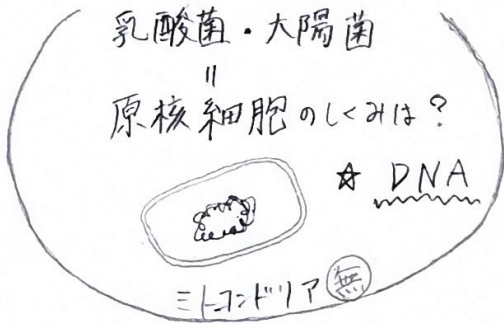 乳酸菌・大陽菌
=
原核細胞のしくみは?
☆ DNA
ミトコンドリア 無